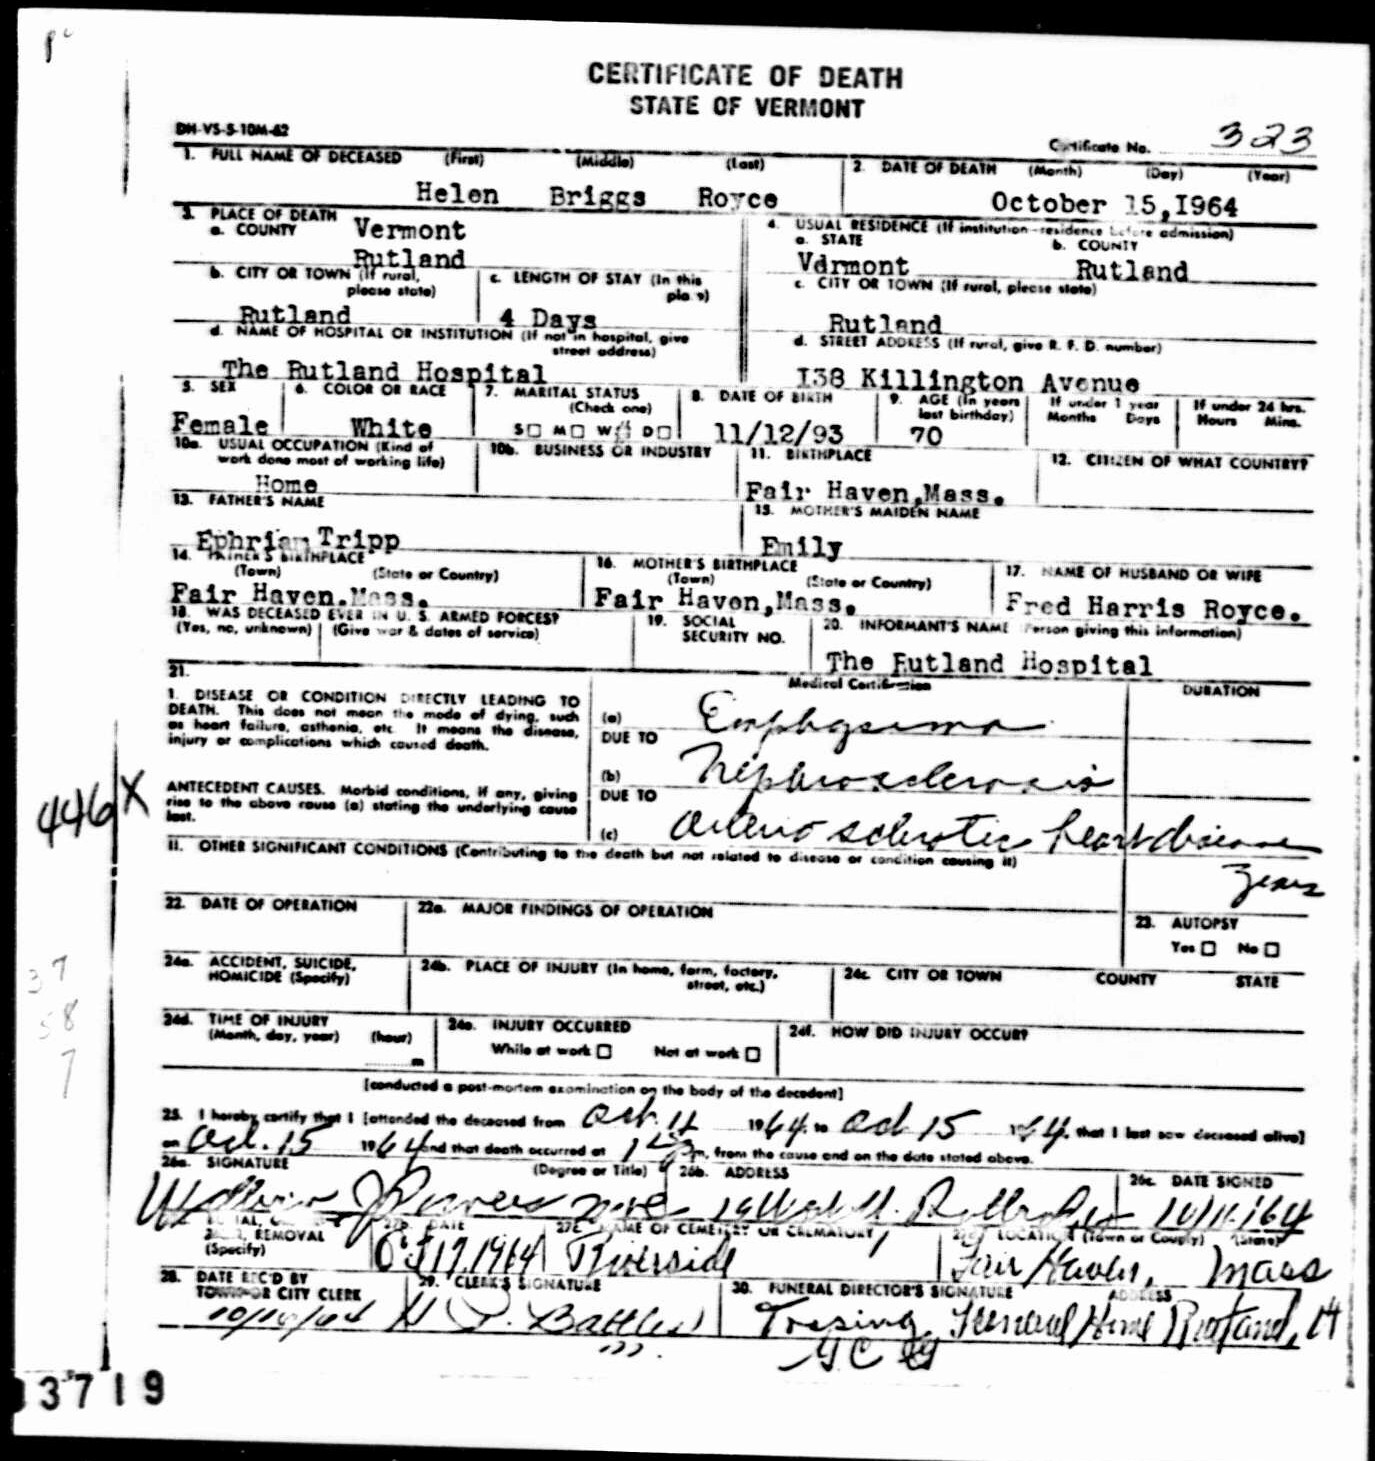 CERTIFICATE OF DEATH
STATE OF VERMONT
DH-VS-S-10M-62
Certificate No. 323
1. FULL NAME OF DECEASED (First) (Middle) (Last)
Helen Briggs Royce
2. DATE OF DEATH (Month) (Day) (Year)
October 15,I964
3. PLACE OF DEATH
a. COUNTY Vermont
Rutland
4. USUAL RESIDENCE (If institution-residence before admission)
a. STATE b. COUNTY
Vdrmont Rutland
b. CITY OR TOWN (If rural,
please state)
Rutland
c. LENGTH OF STAY (In this
place)
4 Days
c. CITY OR TOWN (If rural, please state)
Rutland
d. NAME OF HOSPITAL OR INSTITUTION (If not in hospital, give
street address)
The Rutland Hospital
d. STREET ADDRESS (If rural, give R. F. D. number)
I38 Killington Avenue
5. SEX
Female
6. COLOR OR RACE
White
7. MARITAL STATUS
(Check one)
S M W D
8. DATE OF BIRTH
11/12/93
9. AGE (In years
last birthday)
70
If under 1 year
Months Days
If under 24 hrs.
Hours Mins.
10a. USUAL OCCUPATION (Kind of
work done most of working life)
Home
10b. BUSINESS OR INDUSTRY
11. BIRTHPLACE
Fair Haven,Mass.
12. CITIZEN OF WHAT COUNTRY?
13. FATHER'S NAME
Ephriam Tripp
15. MOTHER'S MAIDEN NAME
Emily
14. FATHER'S BIRTHPLACE
(Town) (State or Country)
Fair Haven.Mass.
16. MOTHER'S BIRTHPLACE
(Town) (State or Country)
Fair Haven,Mass.
17. NAME OF HUSBAND OR WIFE
Fred Harris Royce.
18. WAS DECEASED EVER IN U. S. ARMED FORCES?
(Yes, no, unknown) (Give war & dates of service)
19. SOCIAL
SECURITY NO.
20. INFORMANT'S NAME (Person giving this information)
The Rutland Hospital
21.
Medical Certification
DURATION
1. DISEASE OR CONDITION DIRECTLY LEADING TO
DEATH. This does not mean the mode of dying, such
as heart failure, asthenia, etc. It means the disease,
injury or complications which caused death.
(a) Emphysema
DUE TO
(b) Nephrosclerosis
ANTECEDENT CAUSES. Morbid conditions, if any, giving
rise to the above cause (a) stating the underlying cause
last.
DUE TO
(c) Arterio sclerotic heart disease
years
446X
II. OTHER SIGNIFICANT CONDITIONS (Contributing to the death but not related to disease or condition causing it)
22. DATE OF OPERATION
22a. MAJOR FINDINGS OF OPERATION
23. AUTOPSY
Yes No
24a. ACCIDENT, SUICIDE,
HOMICIDE (Specify)
24b. PLACE OF INJURY (In home, farm, factory,
street, etc.)
24c. CITY OR TOWN COUNTY STATE
37
58
7
24d. TIME OF INJURY
(Month, day, year) (hour)
m
24e. INJURY OCCURRED
While at work Not at work
24f. HOW DID INJURY OCCUR?
[conducted a post-mortem examination on the body of the decedent]
25. I hereby certify that I [attended the deceased from Oct. 11 1964. to Oct 15 1964, that I last saw deceased alive]
on Oct. 15 1964 and that death occurred at m, from the cause and on the date stated above.
26a. SIGNATURE (Degree or Title)
26b. ADDRESS
26c. DATE SIGNED
10/16/64
REMOVAL
(Specify)
27b. DATE
Oct 17, 1964
27c. NAME OF CEMETERY OR CREMATORY
Riverside
LOCATION (Town or County) (State)
Fair Haven, Mass
28. DATE REC'D BY
TOWN OR CITY CLERK
10/16/64
29. CLERK'S SIGNATURE
Battles
30. FUNERAL DIRECTOR'S SIGNATURE ADDRESS
Tossing Funeral Home Rutland, Vt
3719